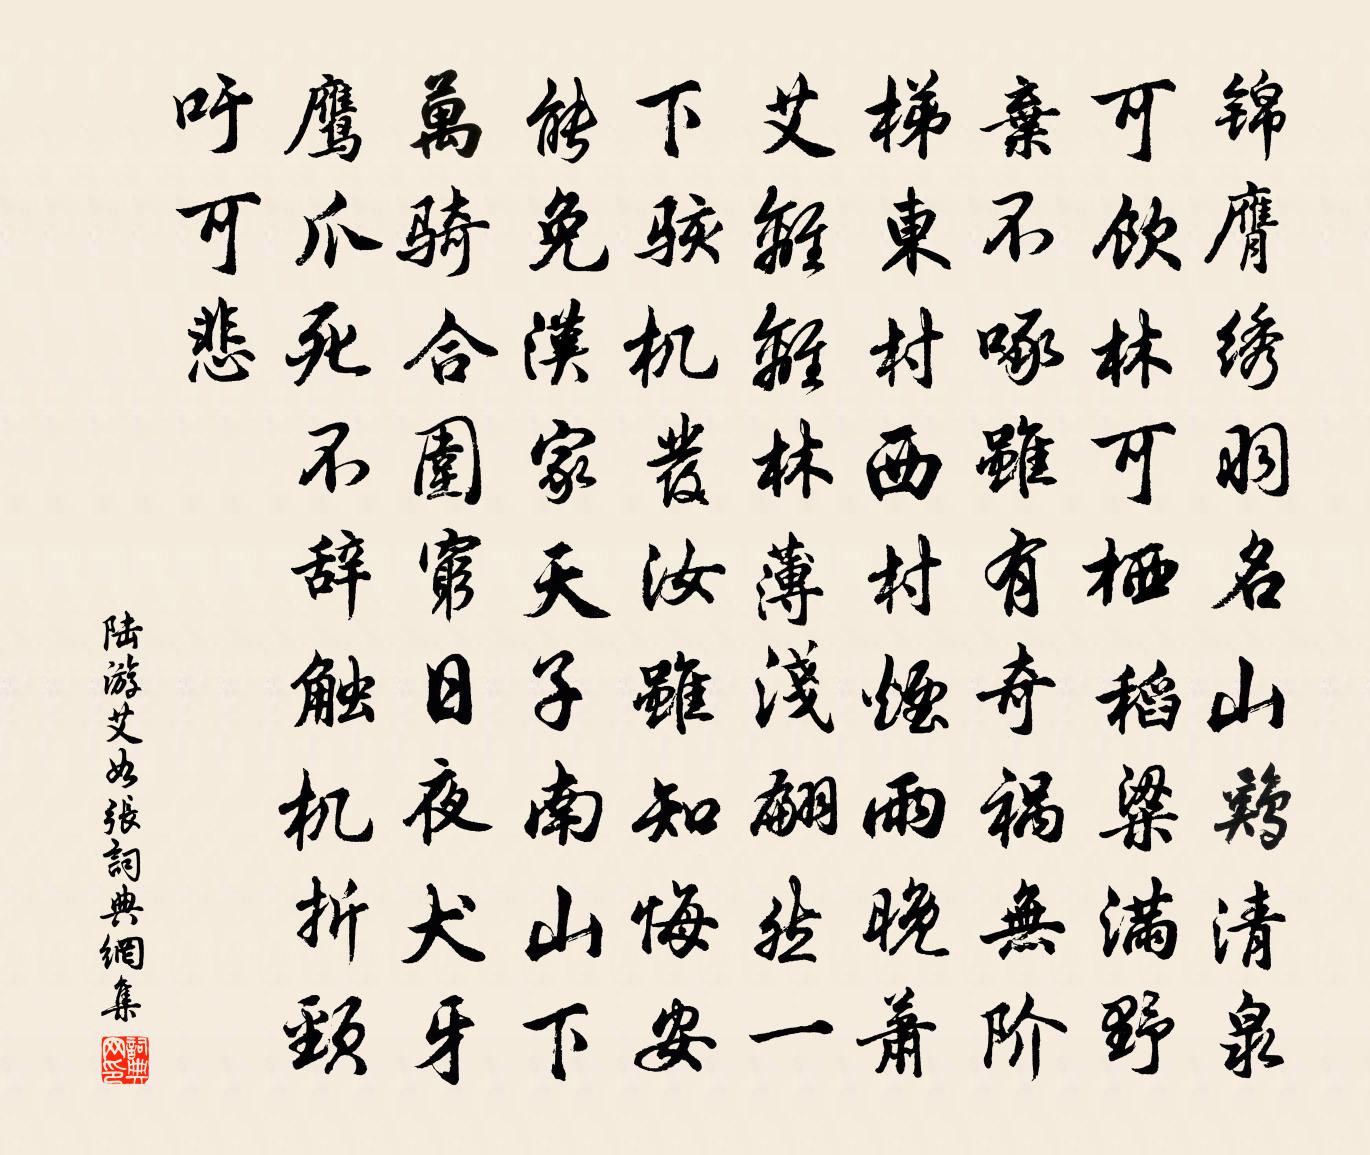 锦膺绣羽名山鸡清泉
可饮林可栖稻粱满野
棄不啄雖有奇祸無阶
梯東村西村煙雨晚萧
艾離離林薄淺翩然一
下骇机發汝雖知悔安
能免漢家天子南山下
萬骑合圍窮日夜犬牙
鹰爪死不辞触机折頸
吁可悲
陆游艾如張詞典網集
詞典网印